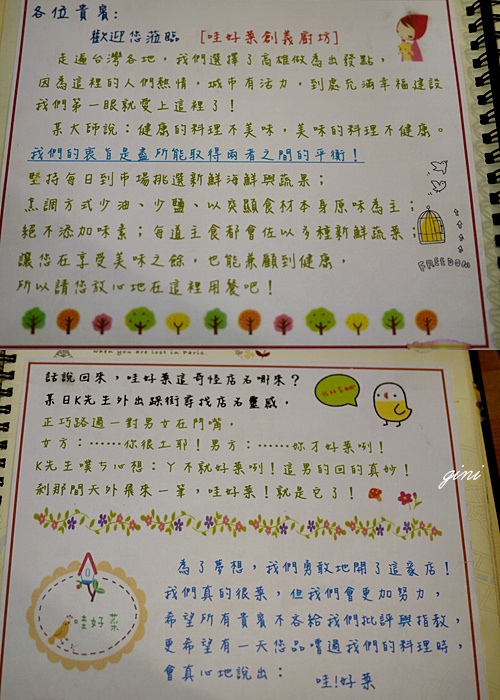 各位貴賓:
歡迎您蒞臨 [哇好菜創義廚坊]
走過台灣各地,我們選擇了高雄做為出發點,
因為這裡的人們熱情,城市有活力,到處充滿幸福建設
我們第一眼就愛上這裡了!
某大師說:健康的料理不美味,美味的料理不健康。
我們的衷旨是盡所能取得兩者之間的平衡!
堅持每日到市場挑選新鮮海鮮與蔬果;
烹調方式少油、少鹽、以突顯食材本身原味為主;
絕不添加味素;每道主食都會佐以多種新鮮蔬菜;
讓您在享受美味之餘,也能兼顧到健康,
所以請您放心地在這裡用餐吧!
FREEDOM
when you are lost in Paris.
話說回來,哇好菜這奇怪店名哪來?
某日K先生外出踩街尋找店名靈感,
正巧路過一對男女在鬥嘴,
女方:……你很土耶!男方:……妳才好菜咧!
K先生噗ㄘ心想:ㄚ不就好菜咧!這男的回的真妙!
剎那間天外飛來一筆,哇好菜!就是它了!
gini
為了夢想,我們勇敢地開了這家店!
我們真的很菜,但我們會更加努力,
希望所有貴賓不吝給我們批評與指教,
更希望有一天您品嚐過我們的料理時,
會真心地說出: 哇!好菜
哇好菜